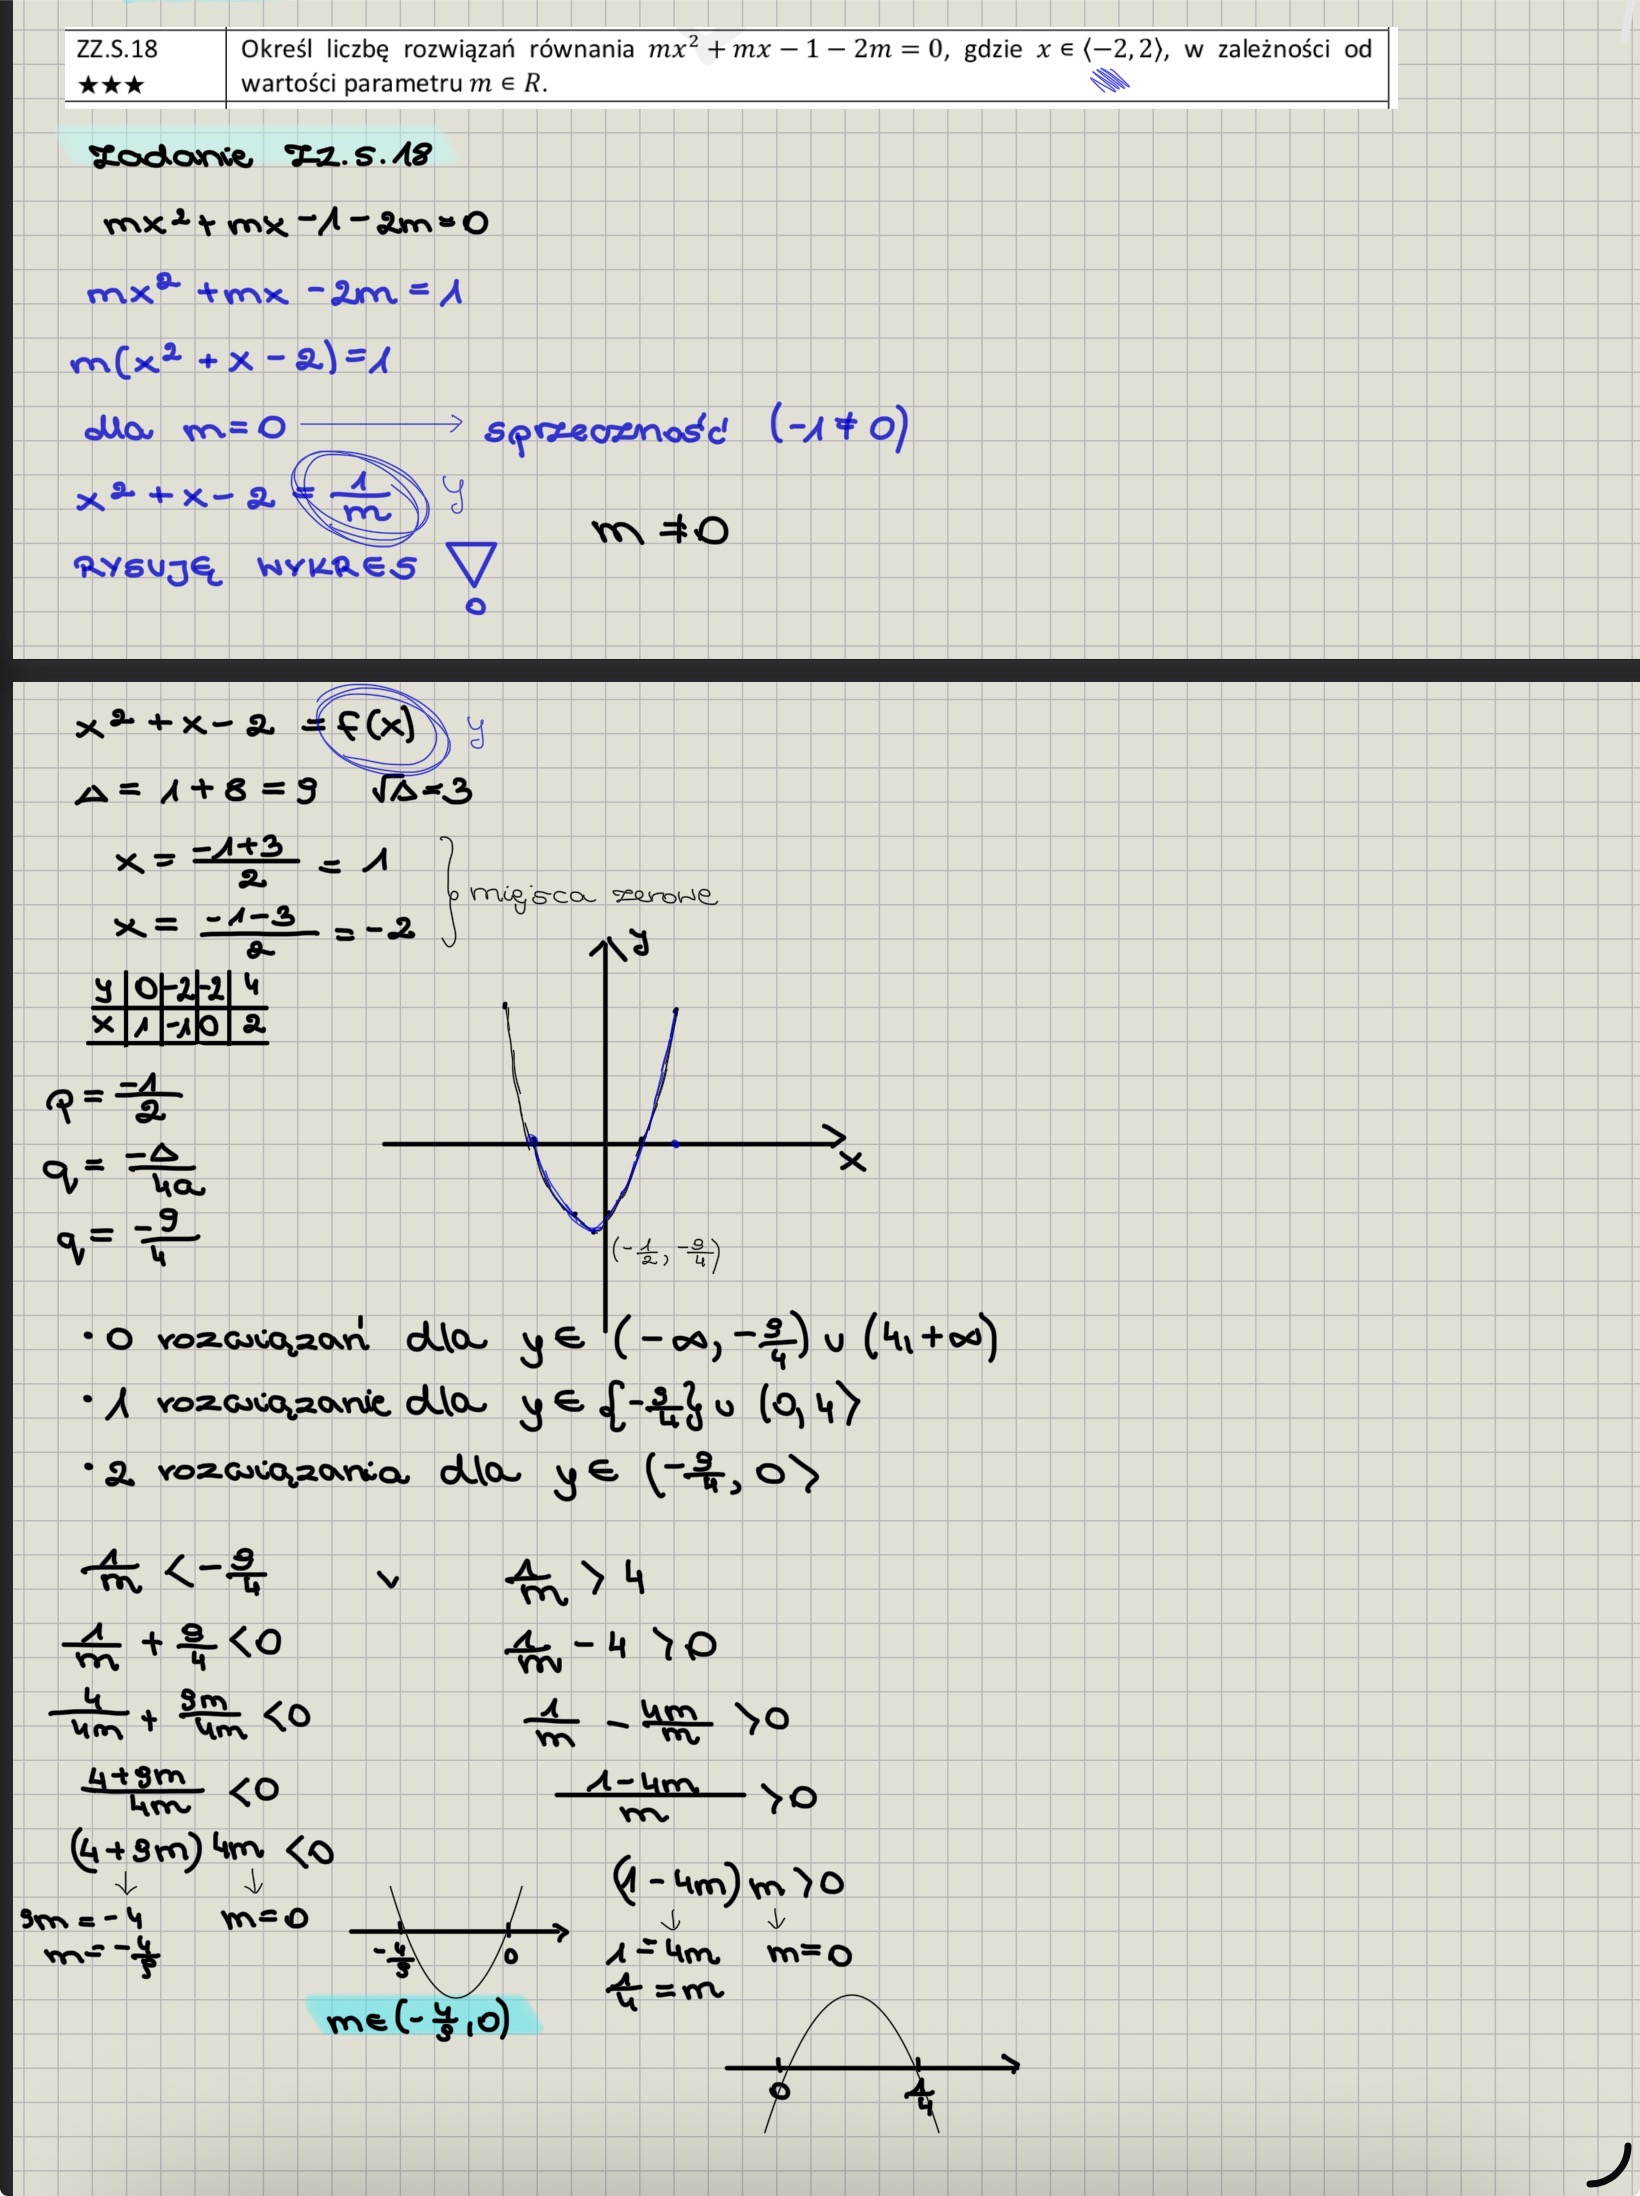 ZZ.S.18 Określ liczbę rozwiązań równania mx² + mx − 1 − 2m = 0, gdzie x ∈ ⟨−2, 2⟩, w zależności od
★★★ wartości parametru m ∈ R.
Zadanie ZZ.S.18
mx² + mx - 1 - 2m = 0
mx² + mx - 2m = 1
m(x² + x - 2) = 1
dla m = 0 → sprzeczność (-1 ≠ 0)
x² + x - 2 = 1/m y
m ≠ 0
RYSUJĘ WYKRES
x² + x - 2 = f(x) y
Δ = 1 + 8 = 9 √Δ = 3
x = (-1+3)/2 = 1
miejsca zerowe
x = (-1-3)/2 = -2
y | 0 | -2 | -2 | 4
x | 1 | -1 | 0 | 2
p = -1/2
q = -Δ/4a
q = -9/4
y
x
(-1/2, -9/4)
• 0 rozwiązań dla y ∈ (-∞, -9/4) ∪ (4, +∞)
• 1 rozwiązanie dla y ∈ {-9/4} ∪ (0, 4⟩
• 2 rozwiązania dla y ∈ (-9/4, 0⟩
1/m < -9/4 ∨ 1/m > 4
1/m + 9/4 < 0 1/m - 4 > 0
4/4m + 9m/4m < 0 1/m - 4m/m > 0
(4+9m)/4m < 0 (1-4m)/m > 0
(4 + 9m) 4m < 0 (1 - 4m) m > 0
↓ ↓ ↓ ↓
9m = -4 m = 0 1 = 4m m = 0
m = -4/9 1/4 = m
-4/9 0
m ∈ (-4/9, 0)
0 1/4